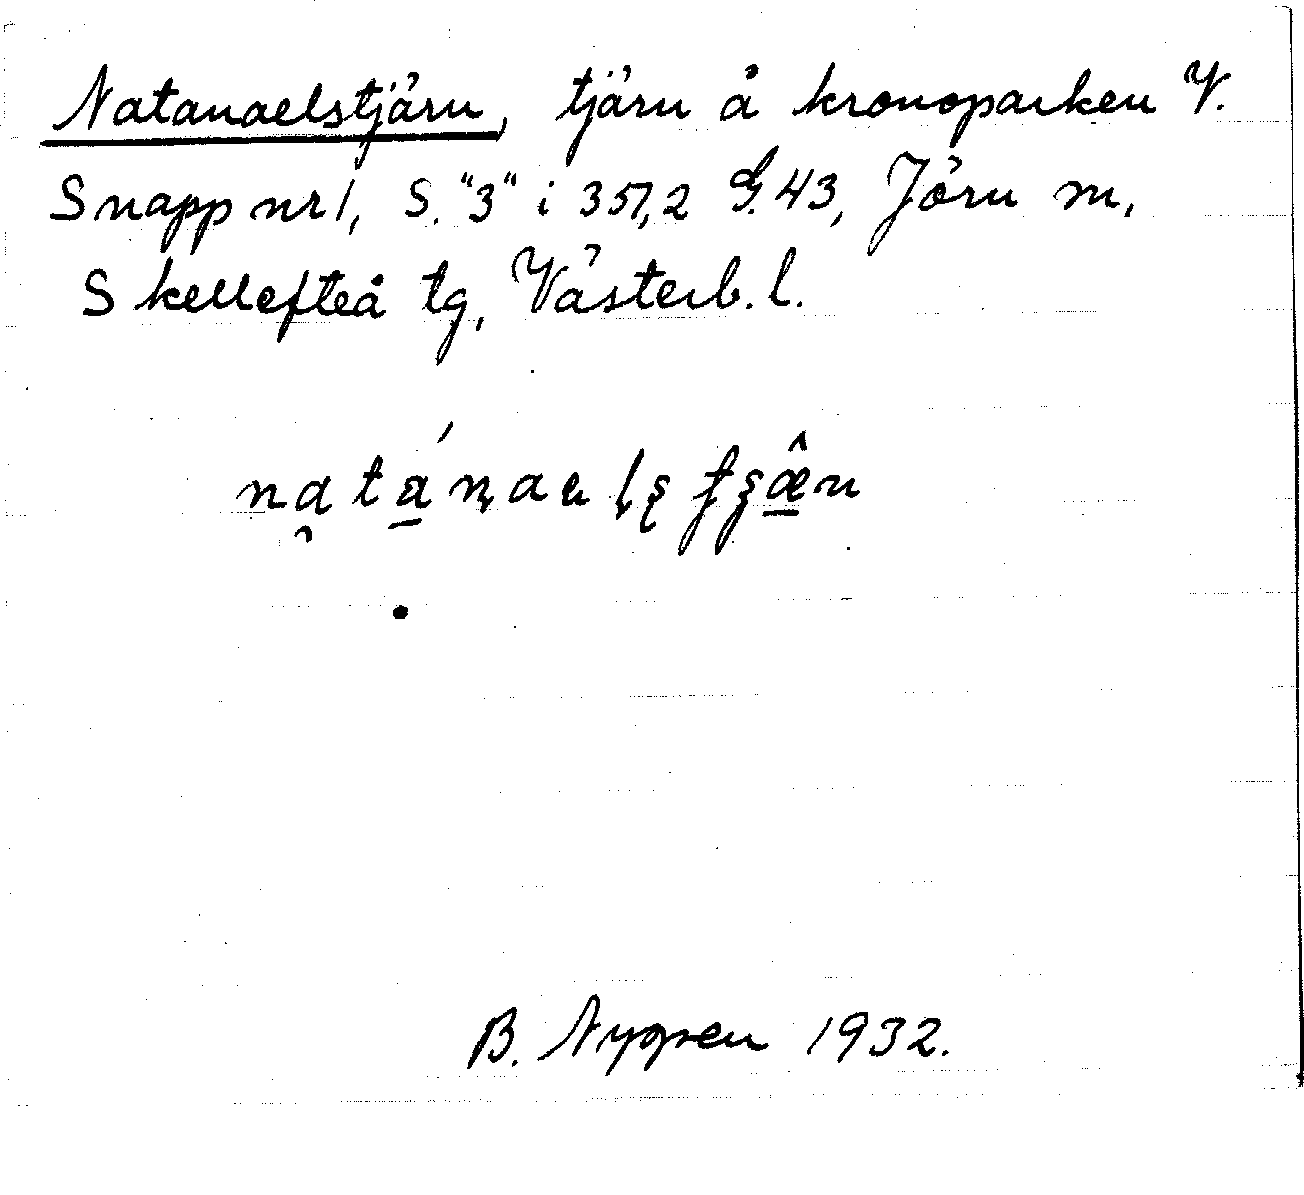 Natanaelstjärn, tjärn å kronoparken V.
Snapp nr 1, S. "3" i 351,2 G. 43, Jörn m,
Skellefteå tg, Västerb. l.
B. Nygren 1932.